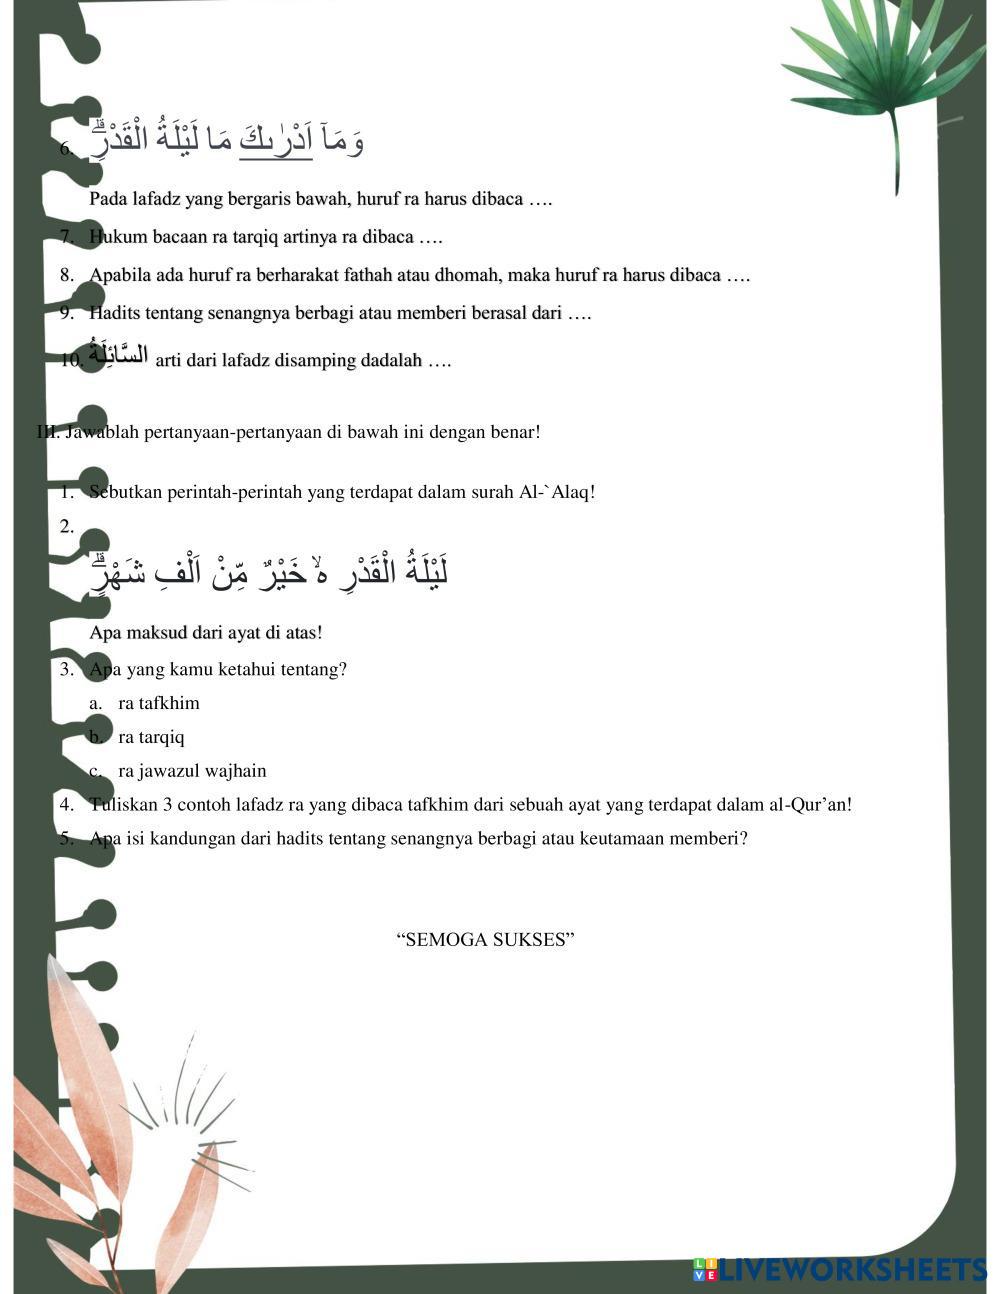 6. وَمَآ اَدْرٰىكَ مَا لَيْلَةُ الْقَدْرِۗ
Pada lafadz yang bergaris bawah, huruf ra harus dibaca ….
7. Hukum bacaan ra tarqiq artinya ra dibaca ….
8. Apabila ada huruf ra berharakat fathah atau dhomah, maka huruf ra harus dibaca ….
9. Hadits tentang senangnya berbagi atau memberi berasal dari ….
10. السَّائِلَةُ arti dari lafadz disamping dadalah ….
III. Jawablah pertanyaan-pertanyaan di bawah ini dengan benar!
1. Sebutkan perintah-perintah yang terdapat dalam surah Al-`Alaq!
2.
لَيْلَةُ الْقَدْرِ ەۙ خَيْرٌ مِّنْ اَلْفِ شَهْرٍۗ
Apa maksud dari ayat di atas!
3. Apa yang kamu ketahui tentang?
a. ra tafkhim
b. ra tarqiq
c. ra jawazul wajhain
4. Tuliskan 3 contoh lafadz ra yang dibaca tafkhim dari sebuah ayat yang terdapat dalam al-Qur’an!
5. Apa isi kandungan dari hadits tentang senangnya berbagi atau keutamaan memberi?
“SEMOGA SUKSES”
LIVE LIVEWORKSHEETS